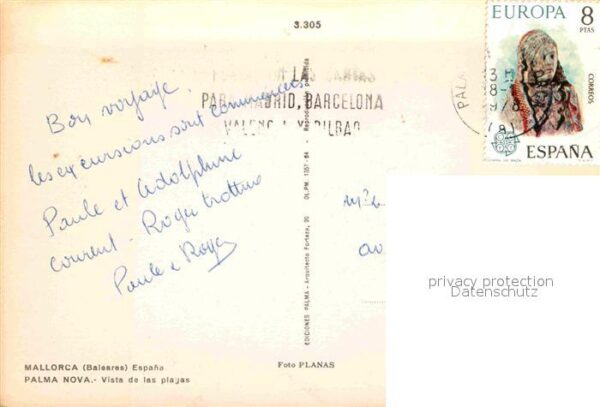 3.305
EUROPA 8
PTAS
CORREOS
ESPAÑA
LAS
PARA MADRID, BARCELONA
VALENCIA Y BILBAO
PALMA
Bon voyage.
les excursions sont commencées.
Paule et Adolphine
courent - Roger trottine
Paule & Roger
EDICIONES PALMA - Arquitecto Forteza, 20 DL.PM. 1357-64 - Reproducción prohibida
privacy protection
Datenschutz
MALLORCA (Baleares) España
PALMA NOVA.- Vista de las playas
Foto PLANAS